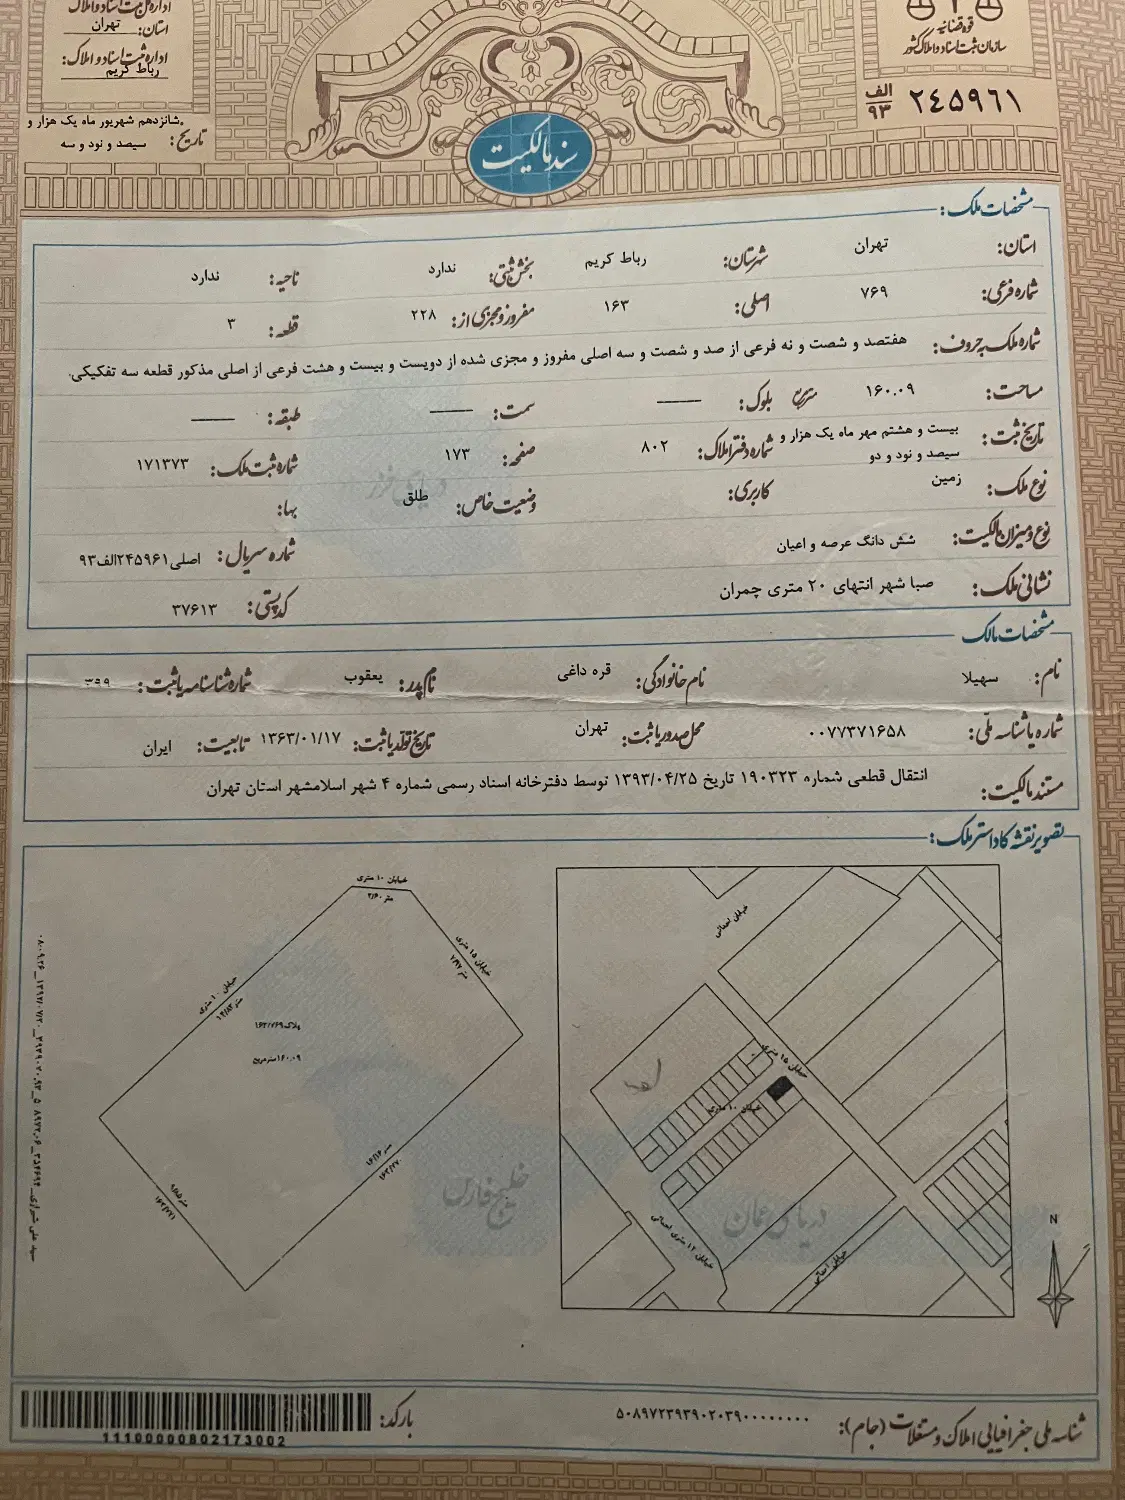 قوه قضائیه
سازمان ثبت اسناد و املاک کشور
۲۴۵۹۶۱ الف ۹۳
استان: تهران
اداره ثبت اسناد و املاک:
رباط کریم
تاریخ: شانزدهم شهریور ماه یک هزار و
سیصد و نود و سه
سند مالکیت
مشخصات ملک:
استان: تهران شهرستان: رباط کریم بخش ثبتی: ندارد ناحیه: ندارد
شماره فرعی: ۷۶۹ اصلی: ۱۶۳ مفروز و مجزی از: ۲۲۸ قطعه: ۳
شماره ملک به حروف: هفتصد و شصت و نه فرعی از صد و شصت و سه اصلی مفروز و مجزی شده از دویست و بیست و هشت فرعی از اصلی مذکور قطعه سه تفکیکی.
مساحت: ۱۶۰.۰۹ متر مربع بلوک: —— سمت: —— طبقه: ——
تاریخ ثبت: بیست و هشتم مهر ماه یک هزار و
سیصد و نود و دو
شماره دفتر املاک: ۸۰۲ صفحه: ۱۷۳ شماره ثبت ملک: ۱۷۱۳۷۳
نوع ملک: زمین کاربری: وضعیت خاص: طلق بها:
نوع و میزان مالکیت: شش دانگ عرصه و اعیان شماره سریال: اصلی۲۴۵۹۶۱الف۹۳
نشانی ملک: صبا شهر انتهای ۲۰ متری چمران کد پستی: ۳۷۶۱۳
مشخصات مالک
نام: سهیلا نام خانوادگی: قره داغی نام پدر: یعقوب شماره شناسنامه یا ثبت:
شماره یا شناسه ملی: ۰۰۷۷۳۷۱۶۵۸ محل صدور یا ثبت: تهران تاریخ تولد یا ثبت: ۱۳۶۳/۰۱/۱۷ تابعیت: ایران
مستند مالکیت: انتقال قطعی شماره ۱۹۰۳۲۳ تاریخ ۱۳۹۳/۰۴/۲۵ توسط دفترخانه اسناد رسمی شماره ۴ شهر اسلامشهر استان تهران
تصویر نقشه کاداستر ملک:
خیابان ۱۰ متری
خیابان ۱۵ متری
خیابان ۱۰ متری
پلاک۱۶۳/۷۶۹
۱۶۰.۰۹مترمربع
خیابان احداثی
خیابان ۱۵ متری
خیابان ۱۰ متری
خیابان ۱۲ متری احداثی
خیابان احداثی
N
دریای خزر
خلیج فارس
دریای عمان
سید علی شیرازی
شناسه ملی جغرافیایی املاک و مستغلات (جام): ۵۰۸۹۷۲۳۹۳۹۰۲۰۳۹۰۰۰۰۰۰۰۰۰
بارکد:
111000000802173002